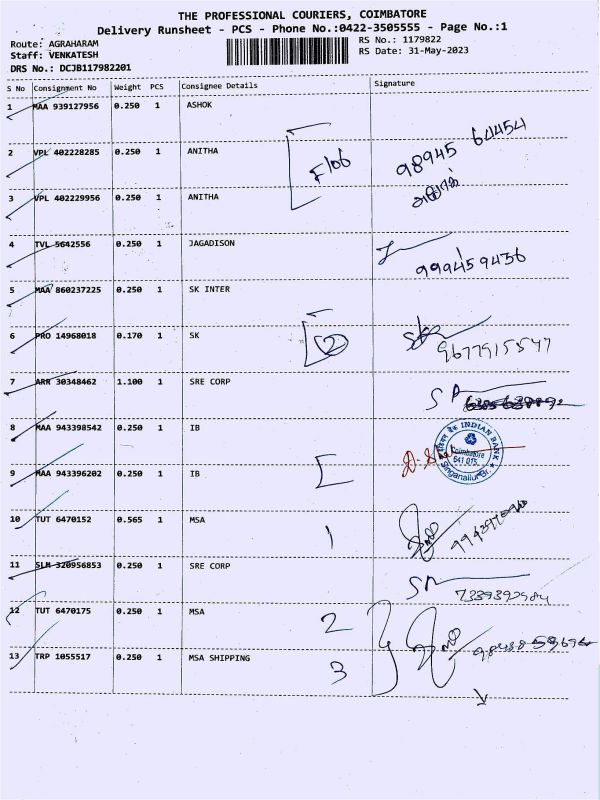 THE PROFESSIONAL COURIERS, COIMBATORE
Delivery Runsheet - PCS - Phone No.:0422-3505555 - Page No.:1
Route: AGRAHARAM
RS No.: 1179822
Staff: VENKATESH
RS Date: 31-May-2023
DRS No.: DCJB117982201
S No Consignment No Weight PCS Consignee Details Signature
1 MAA 939127956 0.250 1 ASHOK
2 VPL 402228285 0.250 1 ANITHA
F106 98945 64454
3 VPL 402229956 0.250 1 ANITHA
4 TVL 5642556 0.250 1 JAGADISON
999459436
5 MAA 860237225 0.250 1 SK INTER
6 PRO 14968018 0.170 1 SK
2 9677915547
7 ARR 30348462 1.100 1 SRE CORP
8 MAA 943398542 0.250 1 IB
INDIAN BANK
Coimbatore
641 015
Singanallur Br.
9 MAA 943396202 0.250 1 IB
10 TUT 6470152 0.565 1 MSA
1
11 SLM 320956853 0.250 1 SRE CORP
12 TUT 6470175 0.250 1 MSA
2
13 TRP 1055517 0.250 1 MSA SHIPPING
3